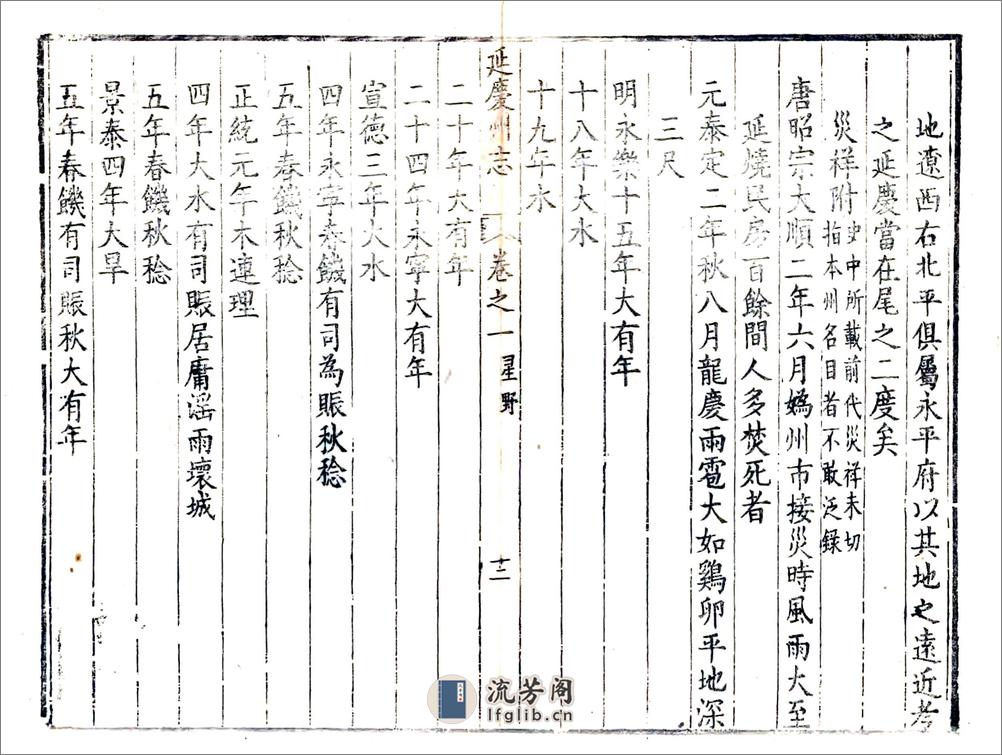 地遼西右北平俱屬永平府以其地之遠近考
之延慶當在尾之二度矣
災祥附史中所載前代災祥未切
指本州名目者不敢泛錄
唐昭宗大順二年六月媯州市接災時風雨大至
延燒民房百餘間人多焚死者
元泰定二年秋八月龍慶雨雹大如鷄卵平地深
三尺
明永樂十五年大有年
十八年大水
十九年水
延慶州志
卷之一
星野
十二
二十年大有年
二十四年永寧大有年
宣德三年大水
四年永寧春饑有司為賑秋稔
五年春饑秋稔
正統元年木連理
四年大水有司賑居庸滛雨壞城
五年春饑秋稔
景泰四年大旱
五年春饑有司賑秋大有年
流芳阁
lfglib.cn